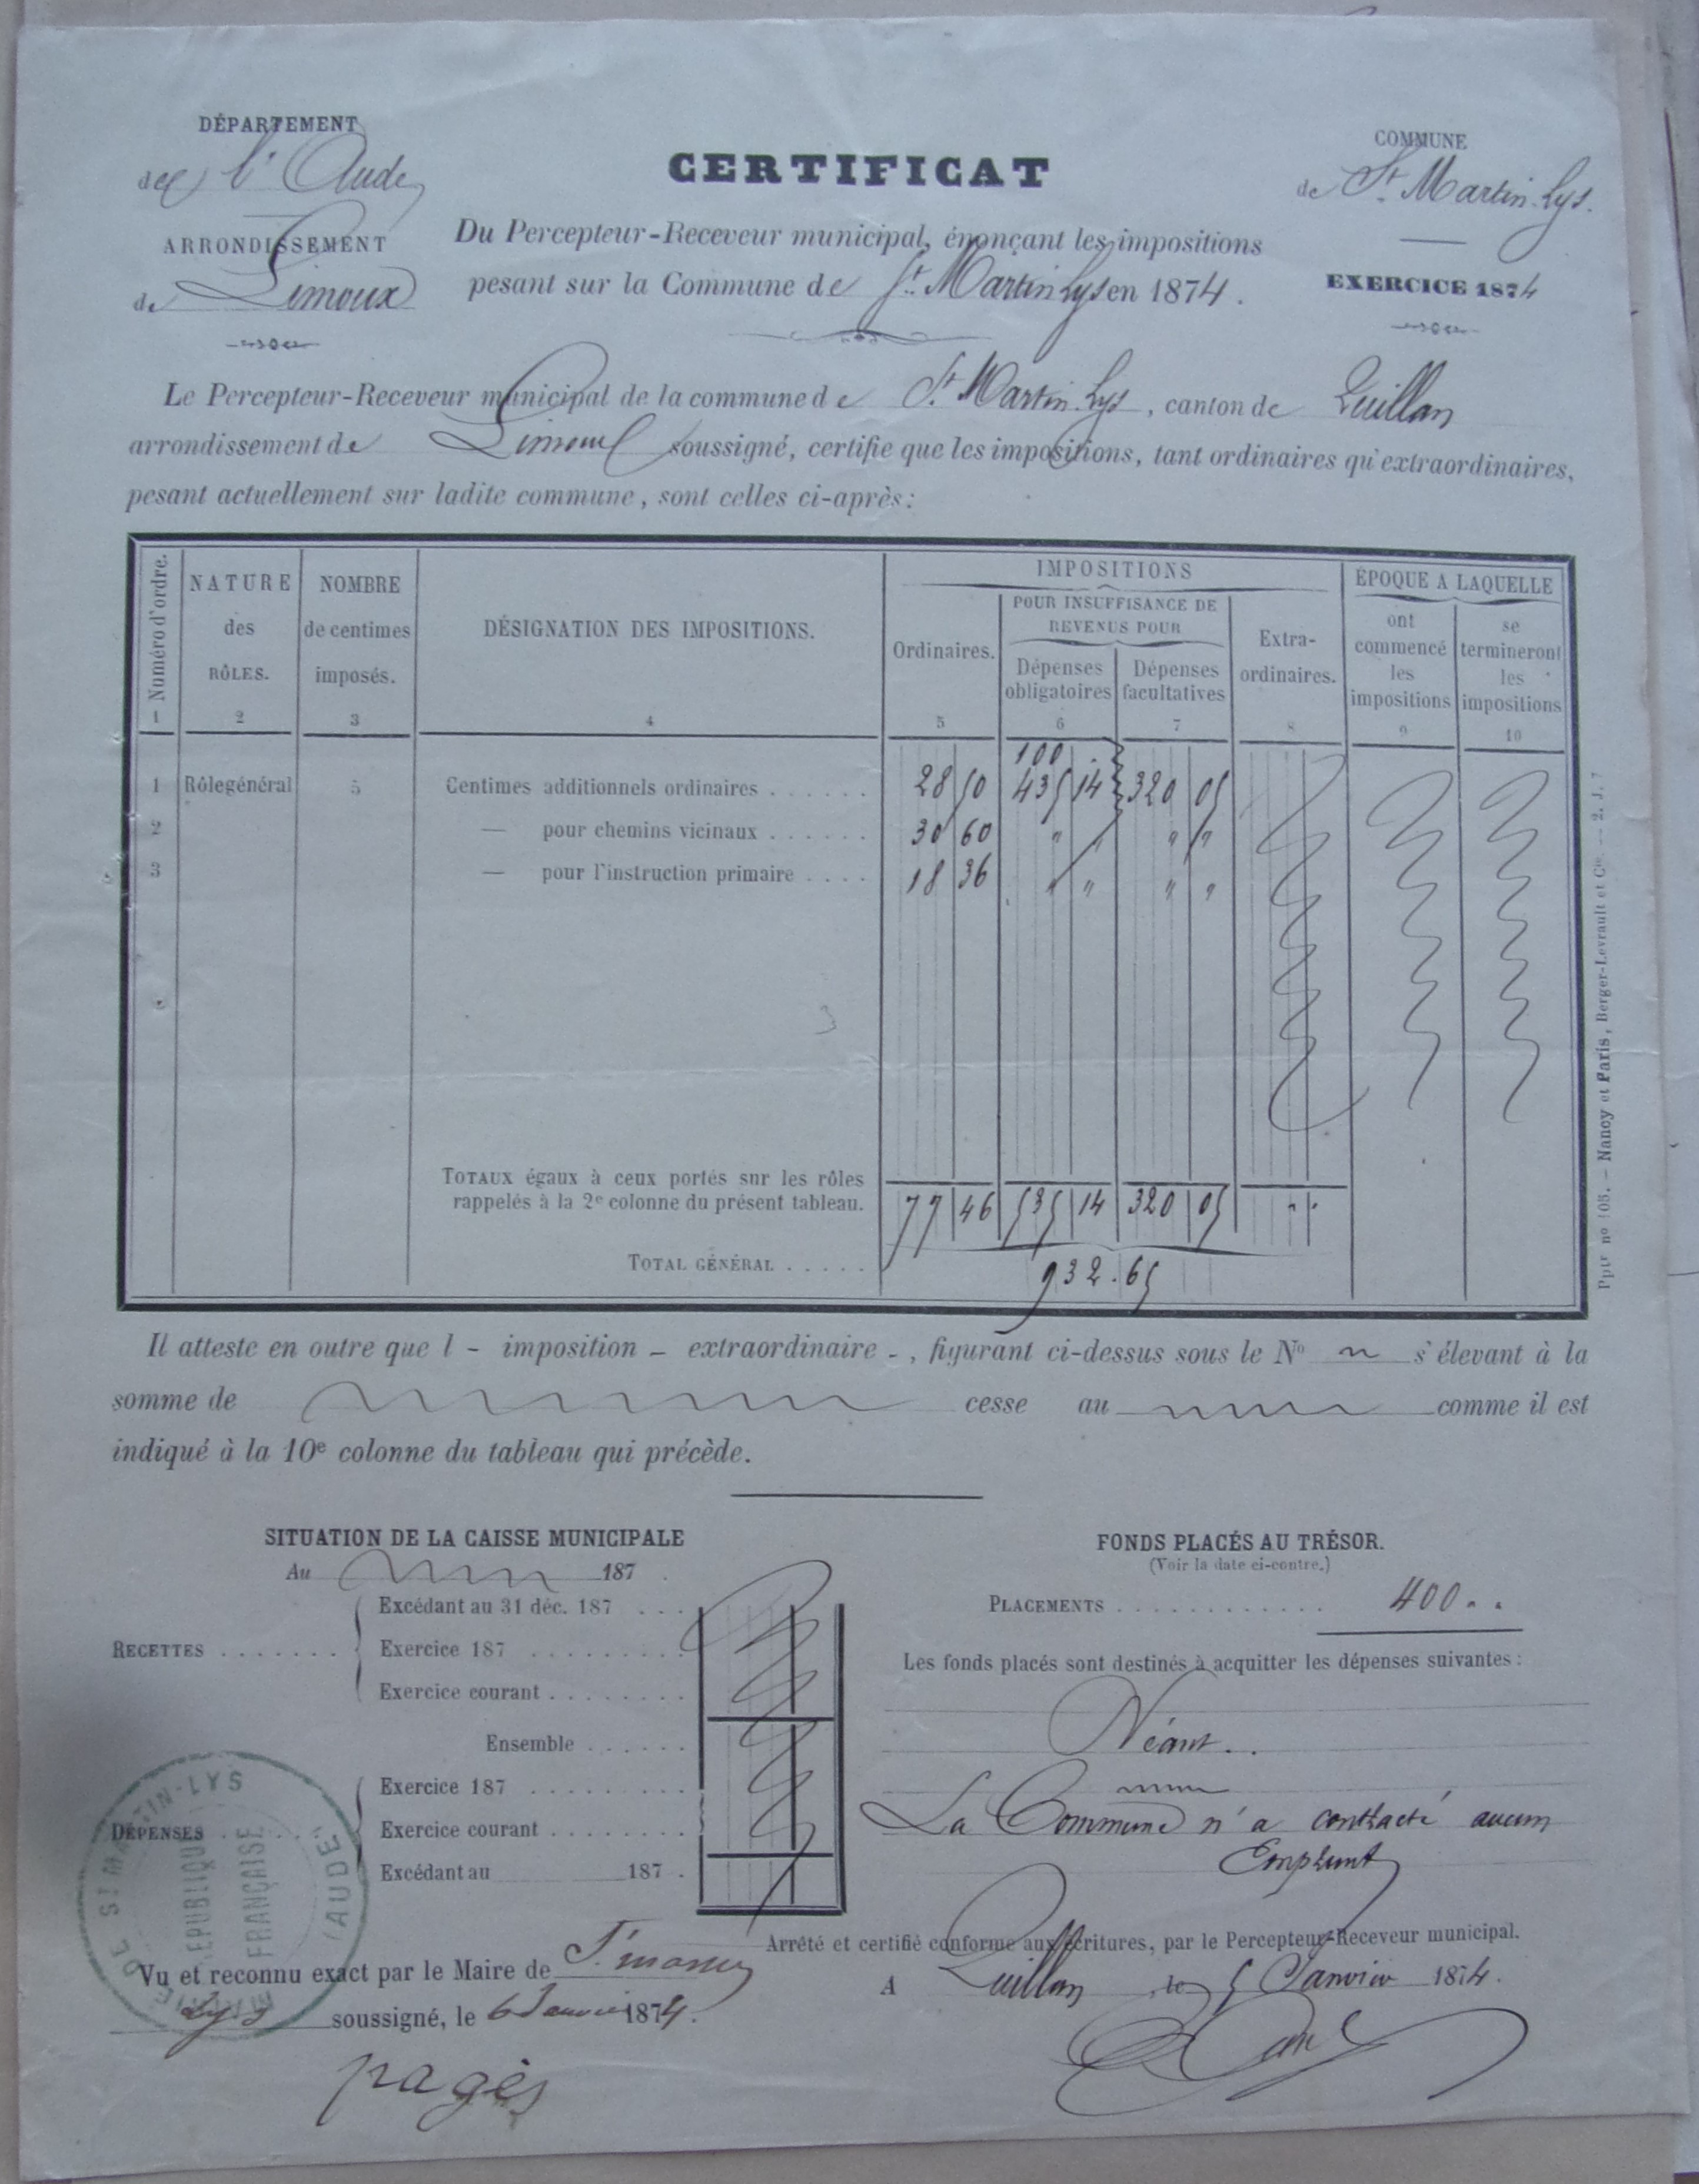 DÉPARTEMENT
de l'Aude
ARRONDISSEMENT
de Limoux
CERTIFICAT
Du Percepteur-Receveur municipal, énonçant les impositions
pesant sur la Commune de St. Martin Lys en 1874.
COMMUNE
de St. Martin-Lys.
EXERCICE 1874
Le Percepteur-Receveur municipal de la commune de St. Martin-Lys, canton de Quillan
arrondissement de Limoux soussigné, certifie que les impositions, tant ordinaires qu'extraordinaires,
pesant actuellement sur ladite commune, sont celles ci-après:
Numéro d'ordre. 1
NATURE des RÔLES. 2
NOMBRE de centimes imposés. 3
DÉSIGNATION DES IMPOSITIONS. 4
IMPOSITIONS
Ordinaires. 5
POUR INSUFFISANCE DE REVENUS POUR
Dépenses obligatoires 6
Dépenses facultatives 7
Extra-ordinaires. 8
ÉPOQUE A LAQUELLE
ont commencé les impositions 9
se termineront les impositions 10
100
1 Rôle général 5 Centimes additionnels ordinaires . . . . . . 28 50 435 14 320 05
2 — pour chemins vicinaux . . . . . . 30 60 " " " "
3 — pour l'instruction primaire . . . . 18 36 " " " "
TOTAUX égaux à ceux portés sur les rôles
rappelés à la 2e colonne du présent tableau. 77 46 535 14 320 05 " "
TOTAL GÉNÉRAL . . . . . 932.65
Ppte no 105. — Nancy et Paris, Berger-Levrault et Cie. — 2. J. 7
Il atteste en outre que l - imposition - extraordinaire -, figurant ci-dessus sous le No s'élevant à la
somme de cesse au comme il est
indiqué à la 10e colonne du tableau qui précède.
SITUATION DE LA CAISSE MUNICIPALE
Au 187 .
RECETTES . . . . . . .
Excédant au 31 déc. 187 . . .
Exercice 187 . . . . . . . . .
Exercice courant . . . . . . .
Ensemble . . . . . .
DÉPENSES . . . . . . .
Exercice 187 . . . . . . . . .
Exercice courant . . . . . . .
Excédant au 187 .
FONDS PLACÉS AU TRÉSOR.
(Voir la date ci-contre.)
PLACEMENTS . . . . . . . . . . . . 400 . .
Les fonds placés sont destinés à acquitter les dépenses suivantes:
Néant..
La Commune n'a contracté aucun
Emprunt
MAIRIE DE ST MARTIN-LYS (AUDE)
RÉPUBLIQUE
FRANÇAISE
Vu et reconnu exact par le Maire de St
Lys soussigné, le 6 Janvier 1874.
pagès
Arrêté et certifié conforme aux écritures, par le Percepteur-Receveur municipal.
A Quillan, le 5 Janvier 1874.